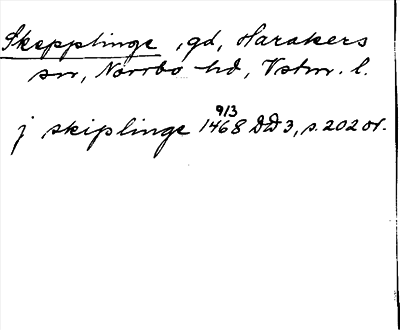 Skepplinge, gd, Harakers
sn, Norrbo hd, Vstm. l.
9/3
j skiplinge 1468 DD 3, s. 202 or.